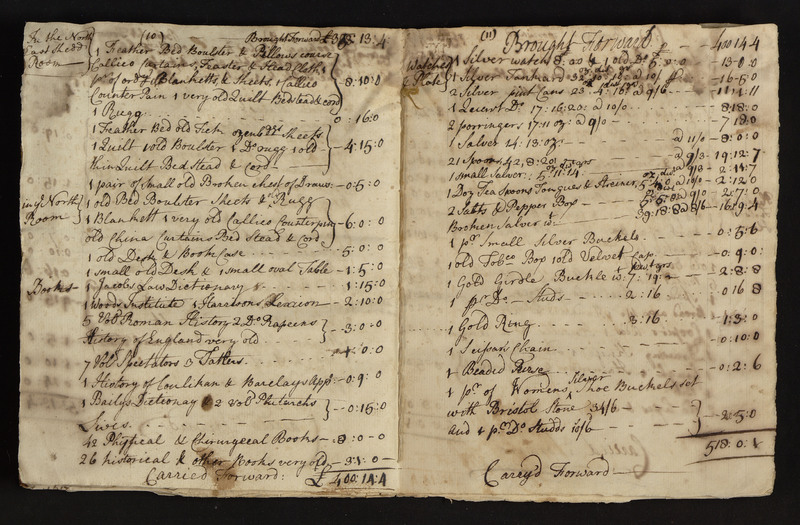 (10) Brought Forward £ 13:4
In the North East Shedd Room
1 Feather Bed Boulster & Pillows course
Callico Curtains, Teaster & Head Cloth
pr of ordy Blanketts & Sheets, 1 Callico 8:10:0
CounterPain 1 very old Quilt Bedstead & cord
1 Rugg 0:16:0
1 Feather Bed old Tick Sheets
1 Quilt 1 old Boulster 1 Do rugg 1 old 4:15:0
thin Quilt Bed Stead & Cord
1 pair of Small old Broken Chest of Draws 0:5:0
in ye North Room
1 old Bed Boulster Sheets & Rugg
1 Blankett 1 very old Callico Counterpin 6:0:0
old China Curtains Bed Stead & Cord
1 old Desk & Book Case 5:0:0
1 small old Desk & 1 small oval Table 1:5:0
Books
1 Jacobs Law Dictionary 1:15:0
1 Woods Institute 1 Harrisons 2:10:0
5 Vol Roman History 2 Do Rapeens
History of England very old 3:0:0
7 Vol Spectators 3 Tatlers :0:0
1 History of Coulikan & Barclays App: 0:9:0
1 Bailys Dictionay & 2 vol Plutarchs
Lives 0:15:0
42 Phisical & Chirurgecal Books 8:0:0
26 historical & other Books very old
Carried Forward: £ 400:14:4
(11) Brought Forward £ 400 14 4
Watches & Plate
1 Silver watch 1 old Do 13:0:0
1 Silver Tankard 16:5:0
2 Silver pint Cans 23:4:16 a 9/6 11:1:11
1 Quart Do 17:16:20: a 10/0 8:18:0
2 porringers 17:11 oz: a 9/0 7 18:0
1 Salver 14:13:oz: a 11/0 8:0:0
21 Spoons 42,8:20 a 9/3 19:12:7
1 small Salver 5:11:14 a 9/3 2:11:7
1 Doz Tea Spoons Tongues & Streiner a 10/0 2:12:0
2 Salts & Pepper Box a 9/0 2:7:0
Broken Salver wt 39:18:8 a 8/6 16:19:4
1 pr Small Silver Buckels 0:5:6
1 old Tobco Box 1 old Velvet Cap 0:9:0:
1 Gold Girdle Buckle wt 7:19: a 2:8:8
1 pr Do Studs 2:16 0 16 8
1 Gold Ring 3:16 1:3:0
1 Scissars Chain 0:10:0
1 Beaded Purse 0:2:6
1 pr of Womens Silver Shoe Buckels set
with Bristol Stone 34/6
and 1 pr Do Studds 10/6 2:5:0
518:0:1
Carey'd Forward